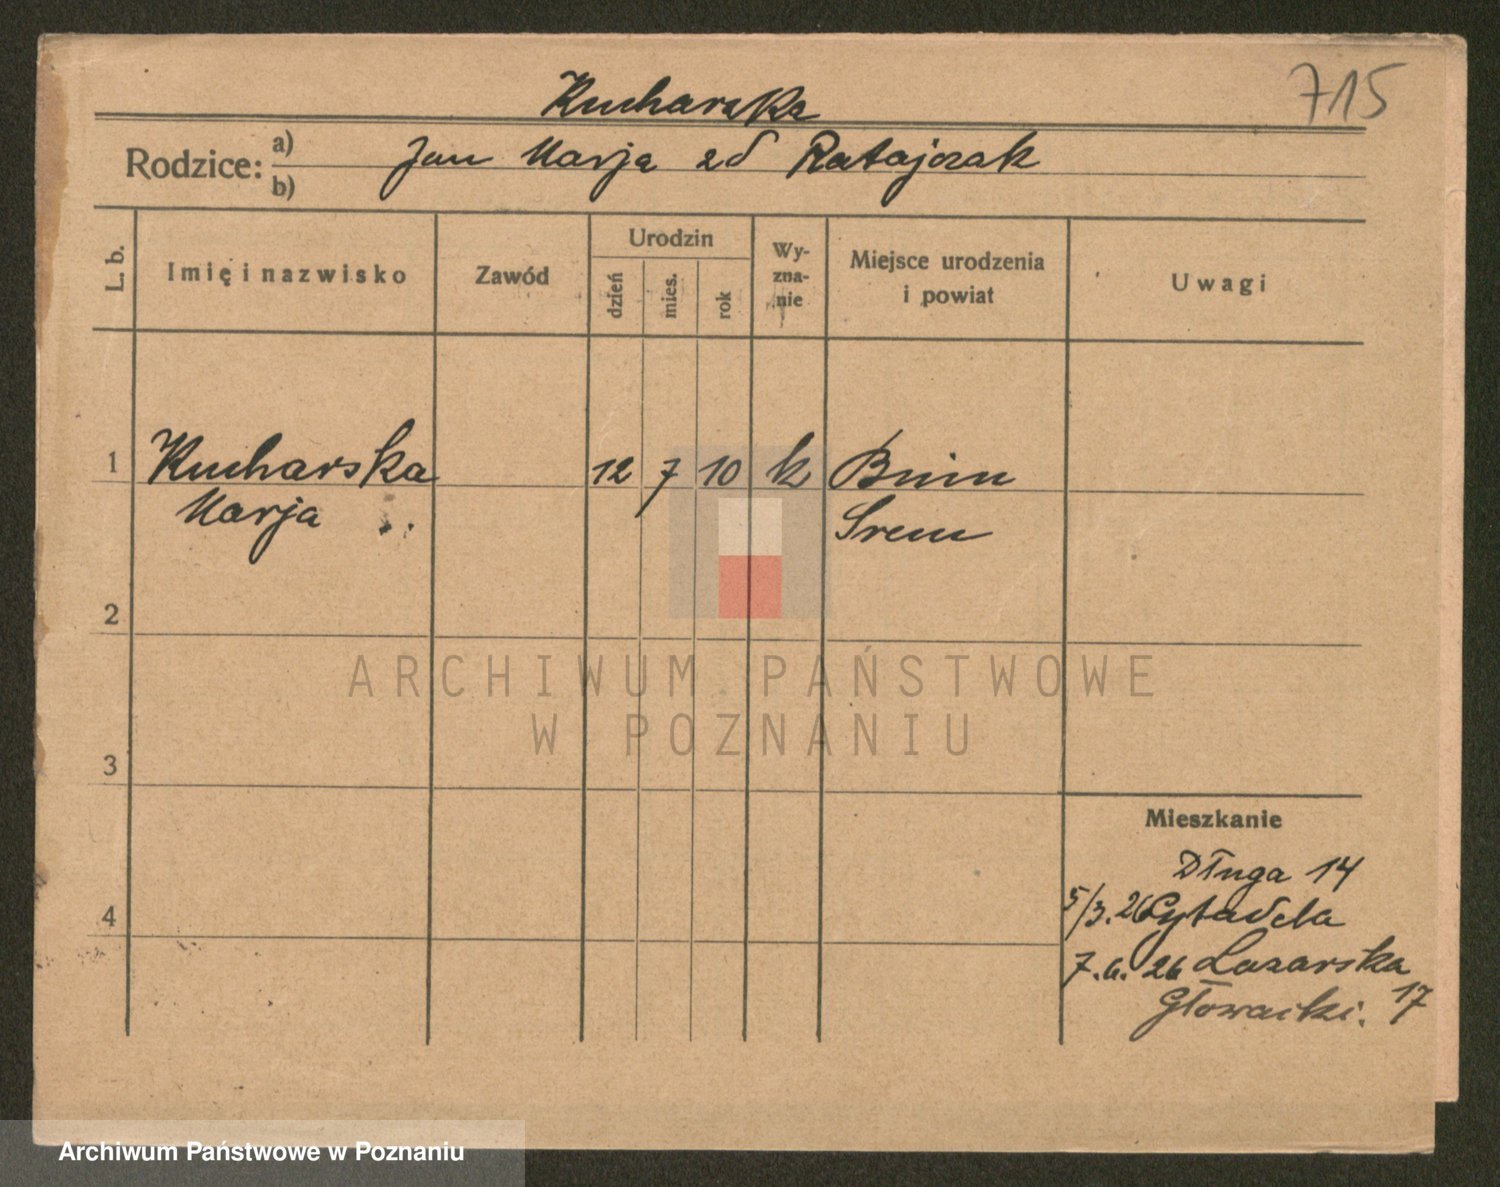 715
Kucharska
Rodzice: a) b)
Jan Marja zd Ratajczak
L. b.
Imię i nazwisko
Zawód
Urodzin
dzień
mies.
rok
Wy-
zna-
nie
Miejsce urodzenia
i powiat
Uwagi
1
Kucharska
Marja
12 7 10 k
Bnin
Srem
2
3
4
Mieszkanie
Długa 14
5/3. 26 Cytadela
7. 6. 26 Lazarska 17
Głowacki.
ARCHIWUM PAŃSTWOWE
W POZNANIU
Archiwum Państwowe w Poznaniu